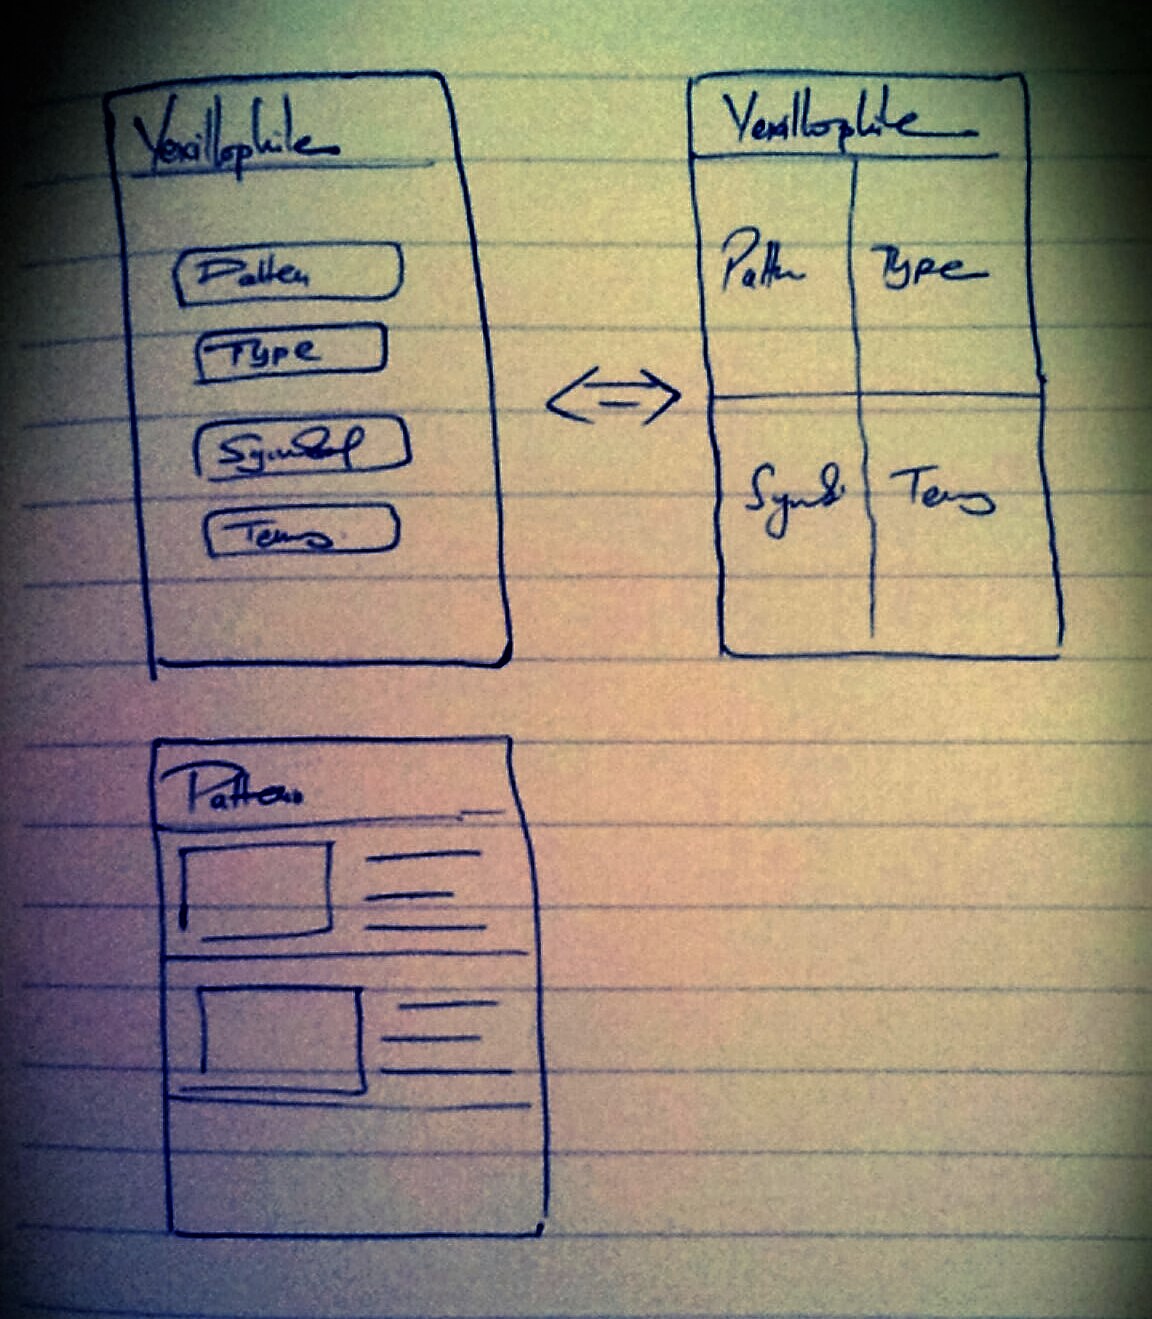 Vexillophile
Pattern
Type
Symbol
Terms
Vexillophile
Pattern
Type
Symbol
Terms
Pattern